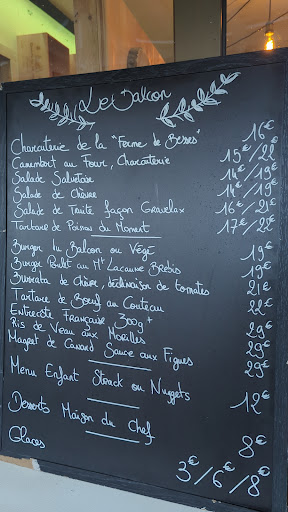 Le Balcon
Charcuterie de la "Ferme de Besses" 16€
Camembert au Four, Charcuterie 15€/22€
Salade Salvetoise 14€/19€
Salade de Chèvre 14€/19€
Salade de Truite façon Gravelax 16€/21€
Tartare de Poisson du Moment 17€/25€
Burger Lu Balcon ou Végé 19€
Burger Poulet au Mt Lacaune Brebis 19€
Burrata de Chèvre, déclinaison de tomates 21€
Tartare de Bœuf au Couteau 22€
Entrecôte Française, 300g + 29€
Ris de Veau aux Morilles 29€
Magret de Canard Sauce aux Figues 29€
Menu Enfant Steack ou Nuggets 12€
Desserts Maison du Chef 8€
Glaces 3€/6€/8€